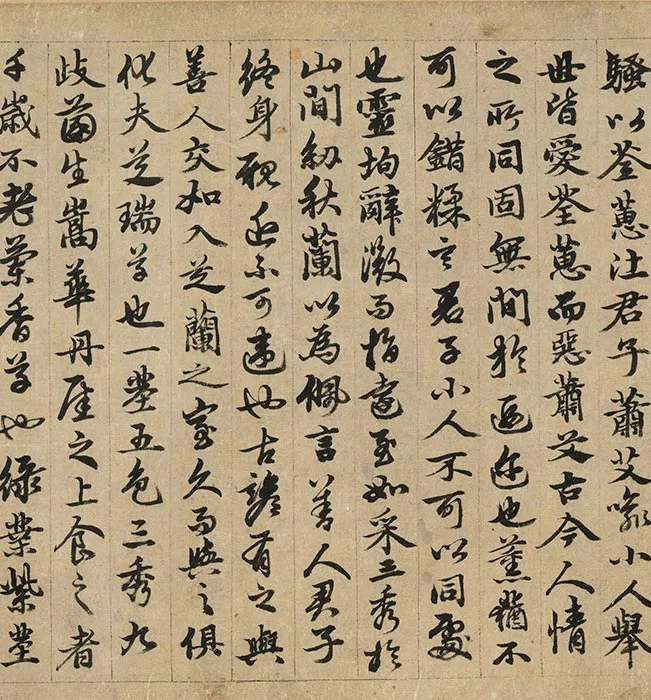 騷以荃蕙比君子蕭艾喻小人舉
世皆愛荃蕙而惡蕭艾古今人情
之所同固無間於遐迩也薰蕕不
可以錯糅言君子小人不可以同處
也靈均辭微而指遠至如采三秀於
山間紉秋蘭以為佩言善人君子
終身親近不可違也古語有之與
善人交如入芝蘭之室久而與之俱
化夫芝瑞草也一莖五色三秀九
歧菌生嵩華丹厓之上食之者
千歲不老蘭香草也綠葉紫莖